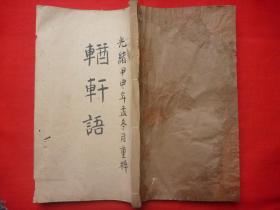 光緒甲申年孟冬月重梓
輶軒語